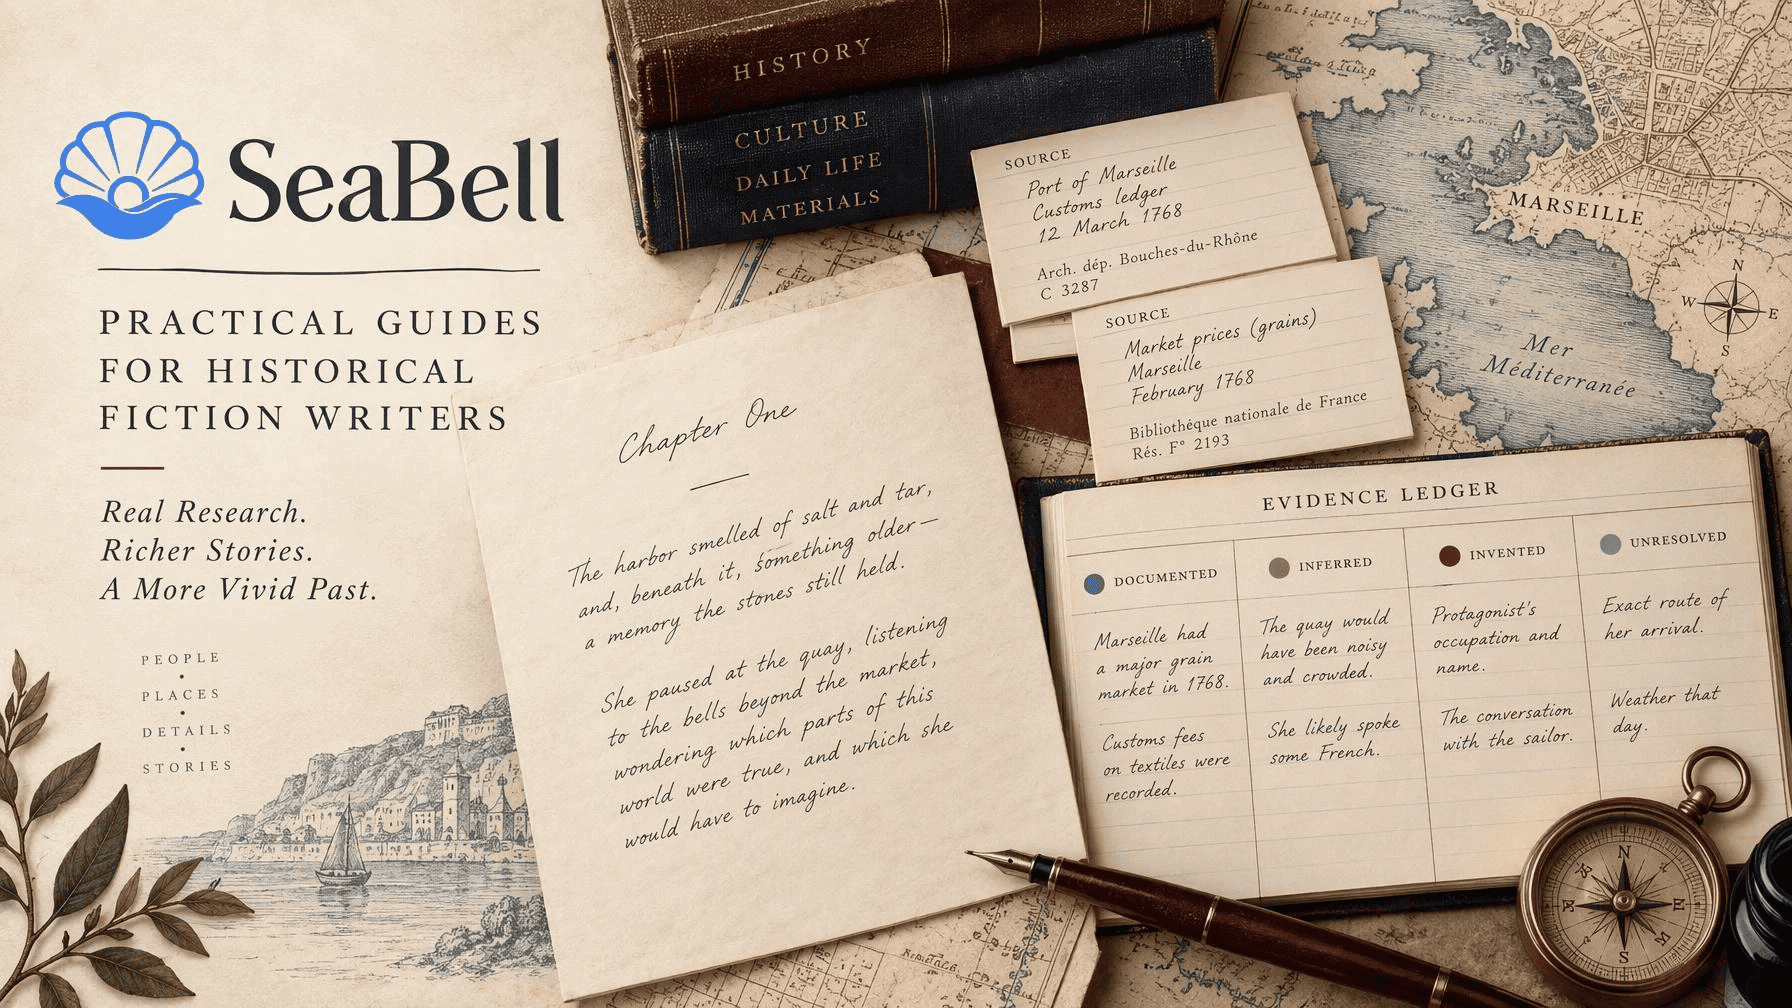 SeaBell
PRACTICAL GUIDES
FOR HISTORICAL
FICTION WRITERS
Real Research.
Richer Stories.
A More Vivid Past.
PEOPLE
•
PLACES
•
DETAILS
•
STORIES
HISTORY
CULTURE
DAILY LIFE
MATERIALS
Chapter One
The harbor smelled of salt and tar,
and, beneath it, something older—
a memory the stones still held.
She paused at the quay, listening
to the bells beyond the market,
wondering which parts of this
world were true, and which she
would have to imagine.
SOURCE
Port of Marseille
Customs ledger
12 March 1768
Arch. dép. Bouches-du-Rhône
C 3287
SOURCE
Market prices (grains)
Marseille
February 1768
Bibliothéque nationale de France
Rés. F° 2193
MARSEILLE
N
W E
S
Mer
Méditerranée
EVIDENCE LEDGER
DOCUMENTED
Marseille had
a major grain
market in 1768.
Customs fees
on textiles were
recorded.
INFERRED
The quay would
have been noisy
and crowded.
She likely spoke
some French.
INVENTED
Protagonist's
occupation and
name.
The conversation
with the sailor.
UNRESOLVED
Exact route of
her arrival.
Weather that
day.
N
S